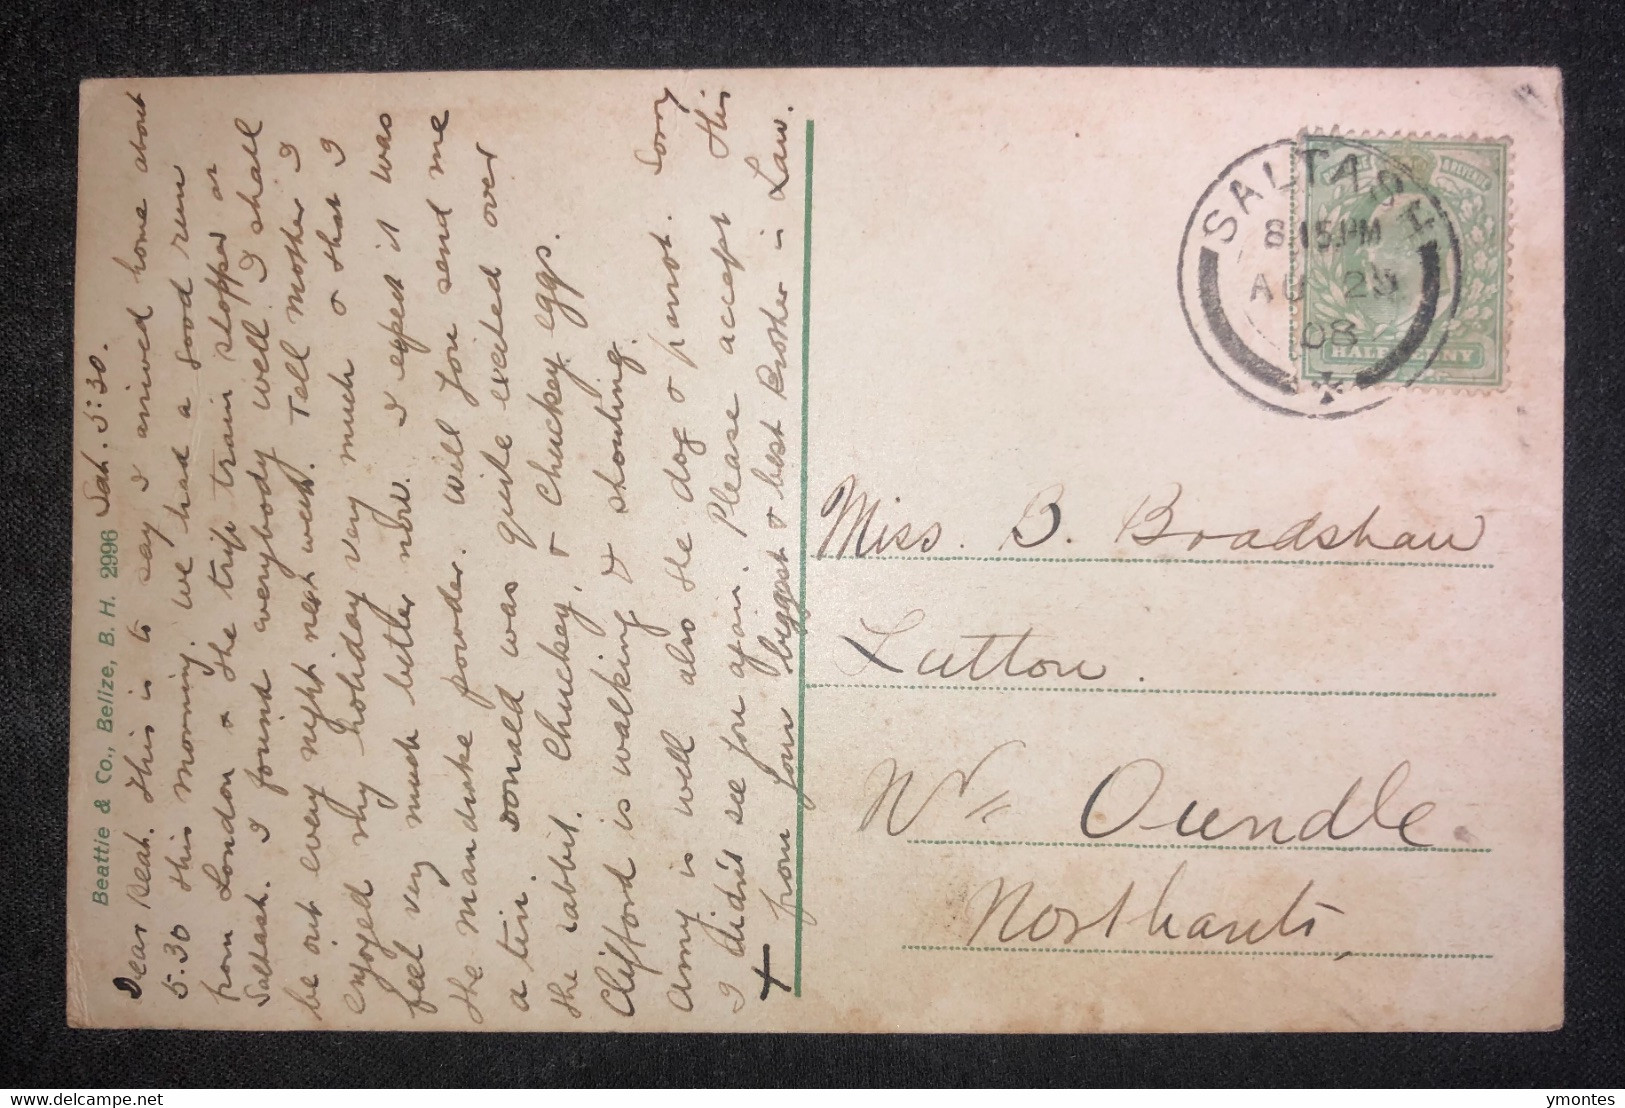 Beattie & Co., Belize, B. H. 2996
Sat. 5:30.
Dear Beat. This is to say I arrived home about
5.30 this morning. We had a good run
from London & the trip train stopper at
Saltash. I found everybody well. I shall
be out every night next week. Tell mother I
enjoyed my holiday very much & that I
feel very much better now. I expect it was
the mandrake powder. Will you send me
a tin. Donald was quite excited over
the rabbit. Chuckey, & Chuckey eggs.
Clifford is walking & shouting.
Amy is well also the dog & parrot. Sorry
I didn't see you again. Please accept this
+ from your biggest & best Brother-in Law.
SALTASH
8.15.PM
AU
08
POSTAGE REVENUE
HALFPENNY
Miss. B. Bradshaw
Lutton.
Nr Oundle.
Northants,
delcampe.net
ymontes